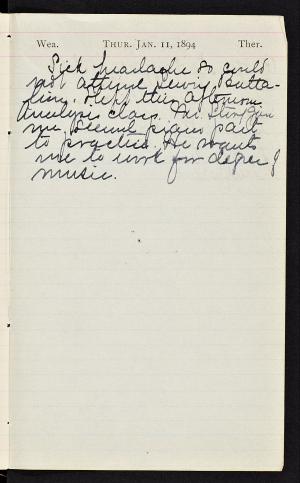 Wea. THUR. JAN. 11, 1894 Ther.
Sick headache so could
not attend Lewis
this afternoon
Analysis class. Mr.
me second piano part
to practice. He wants
me to work for degree of
music.